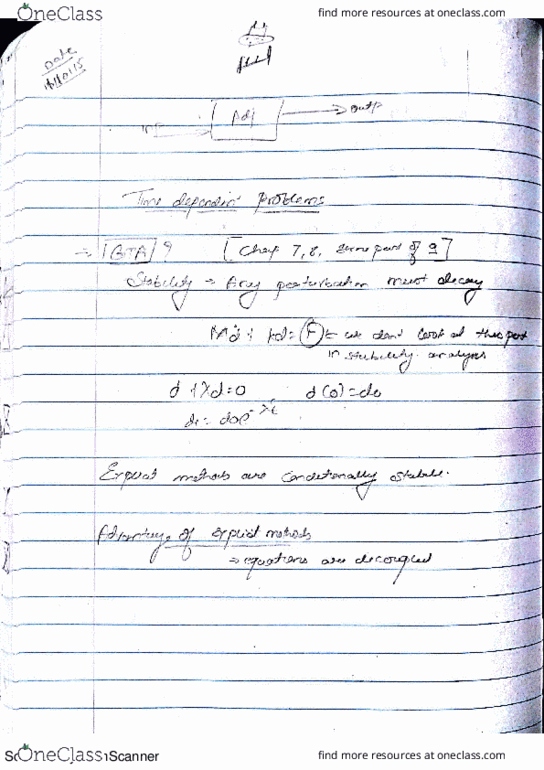 OneClass
find more resources at oneclass.com
Date
Adj → outp
Time dependent problems
[Chap 7, 8, some part of 9]
Stability → Any perturbation must decay
F ← we don't look at this part
in stability analysis
d + λd = 0 d(0) = d0
Explicit methods are conditionally stable.
Advantage of explicit methods
⇒ equations are decoupled
OneClass
Scanner
find more resources at oneclass.com